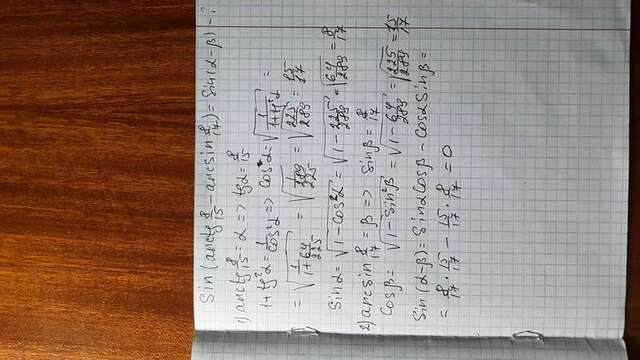 Sin(arctg 8/15 - arcsin 8/17) = Sin(α-β) - ?
1) arctg 8/15 = α => tgα = 8/15
1+tg²α = 1/cos²α => cosα = √(1/(1+tg²α)) =
= √(1/(1+64/225)) = √(1/(289/225)) = √(225/289) = 15/17
Sinα = √(1-cos²α) = √(1-225/289) = √(64/289) = 8/17
2) arcsin 8/17 = β => sinβ = 8/17
Cosβ = √(1-Sin²β) = √(1-64/289) = √(225/289) = 15/17
Sin(α-β) = Sinαcosβ - CosαSinβ =
= 8/17 · 15/17 - 15/17 · 8/17 = 0